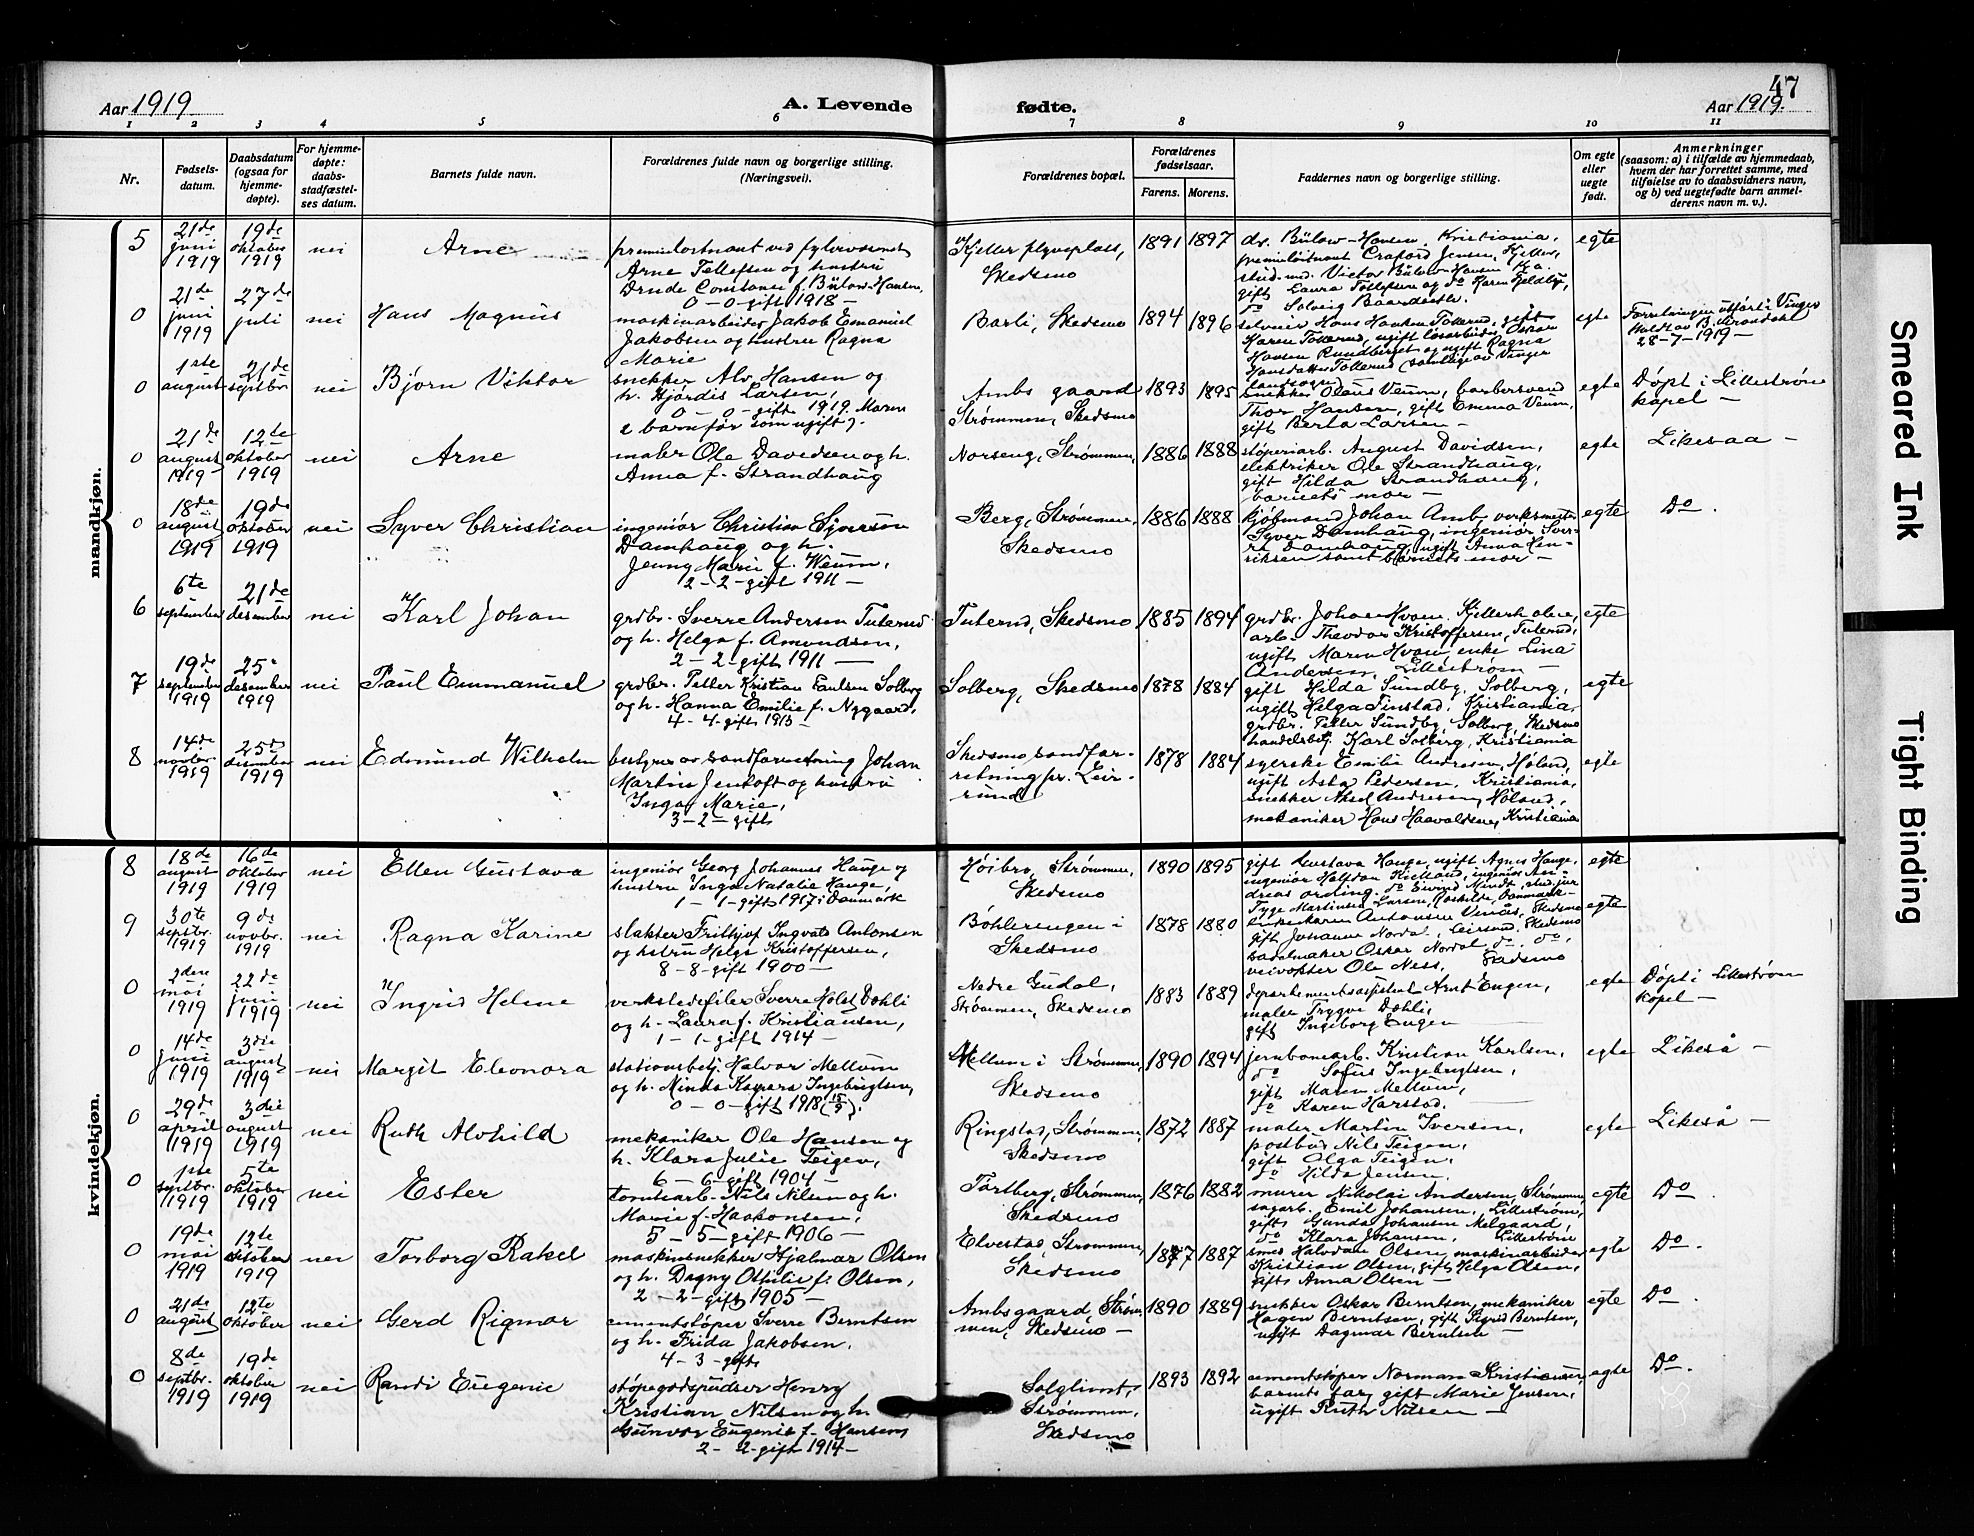 47
Aar 1919.
A. Levende fødte.
Aar 1919.
1 2 3 4 5 6 7 8 9 10 11
Nr.
Fødsels-
datum.
Daabsdatum
(ogsaa for
hjemme-
døpte).
For hjemme-
døpte:
daabs-
stadfæstel-
ses datum.
Barnets fulde navn.
Forældrenes fulde navn og borgerlige stilling.
(Næringsvei).
Forældrenes bopæl.
Forældrenes
fødselsaar.
Farens. Morens.
Faddernes navn og borgerlige stilling.
Om egte
eller
uegte
født.
Anmerkninger
(saasom: a) i tilfælde av hjemmedaab,
hvem der har forrettet samme, med
tilføielse av to daabsvidners navn,
og b) ved uegtefødte barn anmel-
derens navn m. v.).
mandkjøn.
5
21de
juni
1919
19de
oktober
1919
nei
Arne
premierløitnant ved
Arne Tellefsen og hustru
Drude Constance f. Bülow-Hansen.
0 - 0 - gift 1918 -
Kjeller flyveplass,
Skedsmo
1891 1897
dr. Bülow-Hansen, Kristiania,
premierløitnant Craford Jensen, Kjeller,
stud. med. Victor Bülow-Hansen
gift Laura Tellefsen og do Karen
do Solveig
egte
0
21de
juni
1919
27de
juli
nei
Hans Magnus
maskinarbeider Jakob Emanuel
Jakobsen og hustru Ragna
Marie
Barli, Skedsmo
1894 1896
Hans Hansen Tollerud, gift
Karen Tollerud, ugift løsarbeider Oskar
Hansen Rundberget og ugift Ragna
Hansdatter Tollerud (samtlige av Vinger
landsogn)
egte
Forretningen utført i Vinger
28-7-1919 -
0
1ste
august
21de
septbr
nei
Bjørn Viktor
snekker Alv. Hansen og
h. Hjørdis Larsen,
0 - 0 - gift 1919. Moren
2 barn før som ugift).
Ambs gaard
Strømmen, Skedsmo
1893 1895
snekker Olaus Veum, barbersvend
Thor Hansen, gift Emma Veum,
gift Berta Larsen -
egte
Døpt i Lillestrøm
kapel -
0
21de
august
1919
12te
oktober
1919
nei
Arne
maler Ole Davidsen og h.
Anna f. Strandhaug
Norseng, Strømmen,
1886 1888
støperiarb. August Davidsen,
elektriker Ole Strandhaug,
gift Hilda Strandhaug,
barnets mor -
egte
Likesaa -
0
18de
august
1919
19de
oktober
1919
nei
Syver Christian
ingeniør Christian Syverson
Damhaug og h.
Jenny Marie f. Weum,
2 - 2 - gift 1911 -
Berg, Strømmen,
Skedsmo
1886 1888
kjøbmand Johan Amb, verksmester
Syver Damhaug, ingeniør Sver-
re Damhaug, ugift Anna Hen-
riksen samt barnets mor -
egte
Do.
6
6te
september
21de
desember
nei
Karl Johan
grdbr. Sverre Andersen Tuterud
og h. Helga f. Amundsen,
2 - 2 - gift 1911 -
Tuterud, Skedsmo
1885 1894
grdbr. Johan Hvam, Kjellerholen,
arb. Theodor Kristoffersen, Tuterud,
ugift Maren Hvam, enke Lina
Andersen, Lillestrøm -
egte
7
19de
september
1919
25
desember
1919
nei
Paul Emmanuel
grdbr. Petter Kristian Paulsen Solberg
og h. Hanna Emilie f. Nygaard,
4 - 4 - gift 1913
Solberg, Skedsmo
1878 1884
gift Hilda Sundby, Solberg,
ugift Helga Finstad, Kristiania,
grdbr. Petter Sundby, Solberg, Skedsmo
handelsbetj. Karl Solberg, Kristiania
egte
8
14de
novbr
1919
25de
desember
1919
nei
Edmund Wilhelm
bestyrer av sandforretning Johan
Martin Jentoft og hustru
Inga Marie,
3 - 2 - gift
Skedsmo sandfor-
retning pr. Leir-
sund
1878 1884
syerske Emilie Andresen, Høland,
ugift Asta Pedersen, Kristiania,
snekker Aksel Andresen, Høland,
mekaniker Hans Haavaldsen, Kristiania
egte
kvindekjøn.
8
18de
august
1919
16de
oktober
1919
nei
Ellen Gustava
ingeniør Georg Johannes Hauge og
hustru Inga Natalie Hauge,
1 - 1 - gift 1917 i Danmark
Høibro, Strømmen,
Skedsmo
1890 1895
gift Gustava Hauge, ugift Agnes Hauge,
ingeniør Halfdan Kielland, ingeniør An-
dreas Ording, do Eivind Mindt, stud. jur
Tyge Martinus Larsen, Roskilde, Danmark -
egte
9
30te
septbr.
1919
9de
novbr.
1919
nei
Ragna Karine
slakter Frithjof Ingvald Antonsen
og hstru Helga Kristoffersen,
8 - 8 - gift 1900 -
Böhlerengen i
Skedsmo
1878 1880
enke Karen Antonsen Venaas, Skedsmo
gift Johanne Nordal, Leirsund, Skedsmo
sadelmaker Oskar Nordal, do. do.,
veivokter Ole Ness, Skedsmo
egte
0
2den
mai
1919
22de
juni
1919
nei
Ingrid Helene
verkstedfiler Sverre Holst Dahli
og h. Laura f. Kristiansen,
1 - 1 - gift 1914 -
Nedre Gudal,
Strømmen, Skedsmo
1883 1889
departementsassistent Arnt Engen,
maler Trygve Dahli,
gift Ingeborg Engen
egte
Døpt i Lillestrøm
kapel -
0
14de
juni
1919
3die
august
1919
nei
Margit Eleonora
stationsbetj. Halvor Mellum
og h. Minda Kaspara Ingebrigtsen,
0 - 0 - gift 1918 (15/9).
Mellum i Strømmen,
Skedsmo
1890 1894
jernbanearb. Kristian Karlsen,
do Sofus Ingebrigtsen,
gift Maren Mellum,
do Karen Harstad.
egte
Likeså -
0
29de
april
1919
3die
august
1919
nei
Ruth Alvhild
mekaniker Ole Hansen og
h. Klara Julie Teigen,
6 - 6 - gift 1904 -
Ringstad, Strømmen,
Skedsmo
1872 1887
maler Martin Iversen,
postbud Nils Teigen,
gift Olga Teigen,
do Hilda Jensen.
egte
Likeså -
0
1ste
septbr.
1919
5te
oktober
1919
nei
Ester
tomtearb. Nils Nilsen og h.
Marie f. Haakonsen,
5 - 5 - gift 1906 -
Torsberg, Strømmen,
Skedsmo
1876 1882
murer Nikolai Andersen, Strømmen,
sagarb. Emil Johansen, Lillestrøm,
gift Gunda Johansen Melgaard,
do Klara Johansen, Lillestrøm
egte
Do.
0
19de
mai
1919
12te
oktober
1919
nei
Torborg Rakel
maskinsnekker Hjalmar Olsen
og h. Dagny Othilie f. Olsen,
2 - 2 - gift 1905 -
Elvestad, Strømmen,
Skedsmo
1877 1887
smed Halvdan Olsen, maskinarbeider
Kristian Olsen, gift Helga Olsen,
gift Anna Olsen -
egte
Do.
0
21de
august
12te
oktober
nei
Gerd Rigmor
cementstøper Sverre Berntsen
og h. Frida Jakobsen.
4 - 3 - gift
Ambsgaard, Strøm-
men, Skedsmo -
1890 1889
snekker Oskar Berntsen, mekaniker
Hagen Berntsen, gift Sigrid Berntsen,
ugift Dagmar Berntsen -
egte
Do.
0
8de
septbr.
1919
19de
oktober
1919
nei
Randi Eugenie
støpegodspudser Henry
Kristian Nilsen og h.
Gunvor Eugenie f. Hansen,
2 - 2 - gift 1914 -
Solglimt,
Strømmen,
Skedsmo
1893 1892
cementstøper Norman Kristiansen,
barnets far, gift Marie Jensen,
ugift Ruth Nilsen -
egte
Do.
Smeared Ink
Tight Binding